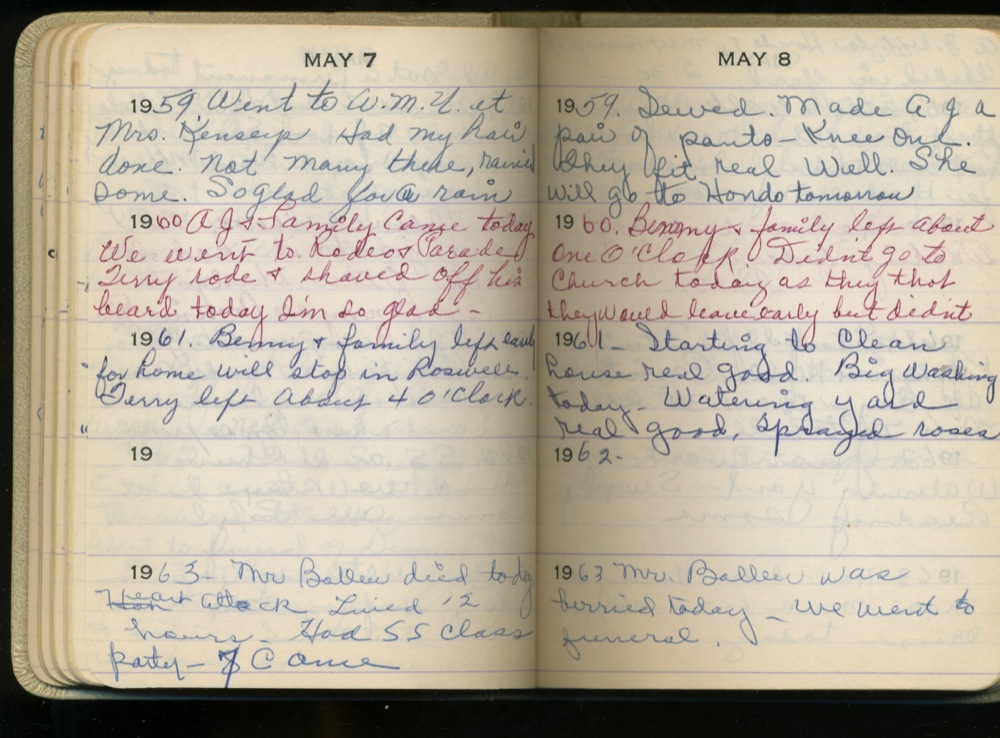 MAY 7
1959 Went to W.M.U. at
Mrs. Had my hair
done. Not many there, rained
some. So glad for a rain
1960 A J & Family Came today
We went to Rodeo & Parade
Terry rode & shaved off his
beard today I'm so glad -
1961. Benny & family left early
for home will stop in Roswell.
Terry left About 4 O'Clock.
19
1963- Mr Ballew died today
Heart attack Lived 12
hours - Had SS Class
party - 7 Came
MAY 8
1959. Sewed. Made A J a
pair of pants - Knee ones.
They fit real Well. She
will go to Hondo tomorrow
1960. Benny & family left About
One O'Clock Didn't go to
Church today as they thot
they would leave early but didn't
1961- Starting to Clean
house real good. Big Washing
today - Watering yard
real good, sprayed roses
1962-
1963 Mr. Ballew was
berried today - We went to
funeral.